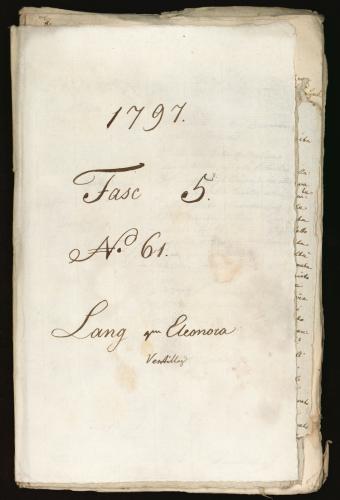 1797.
Fasc 5.
No 61.
Lang qm Eleonora